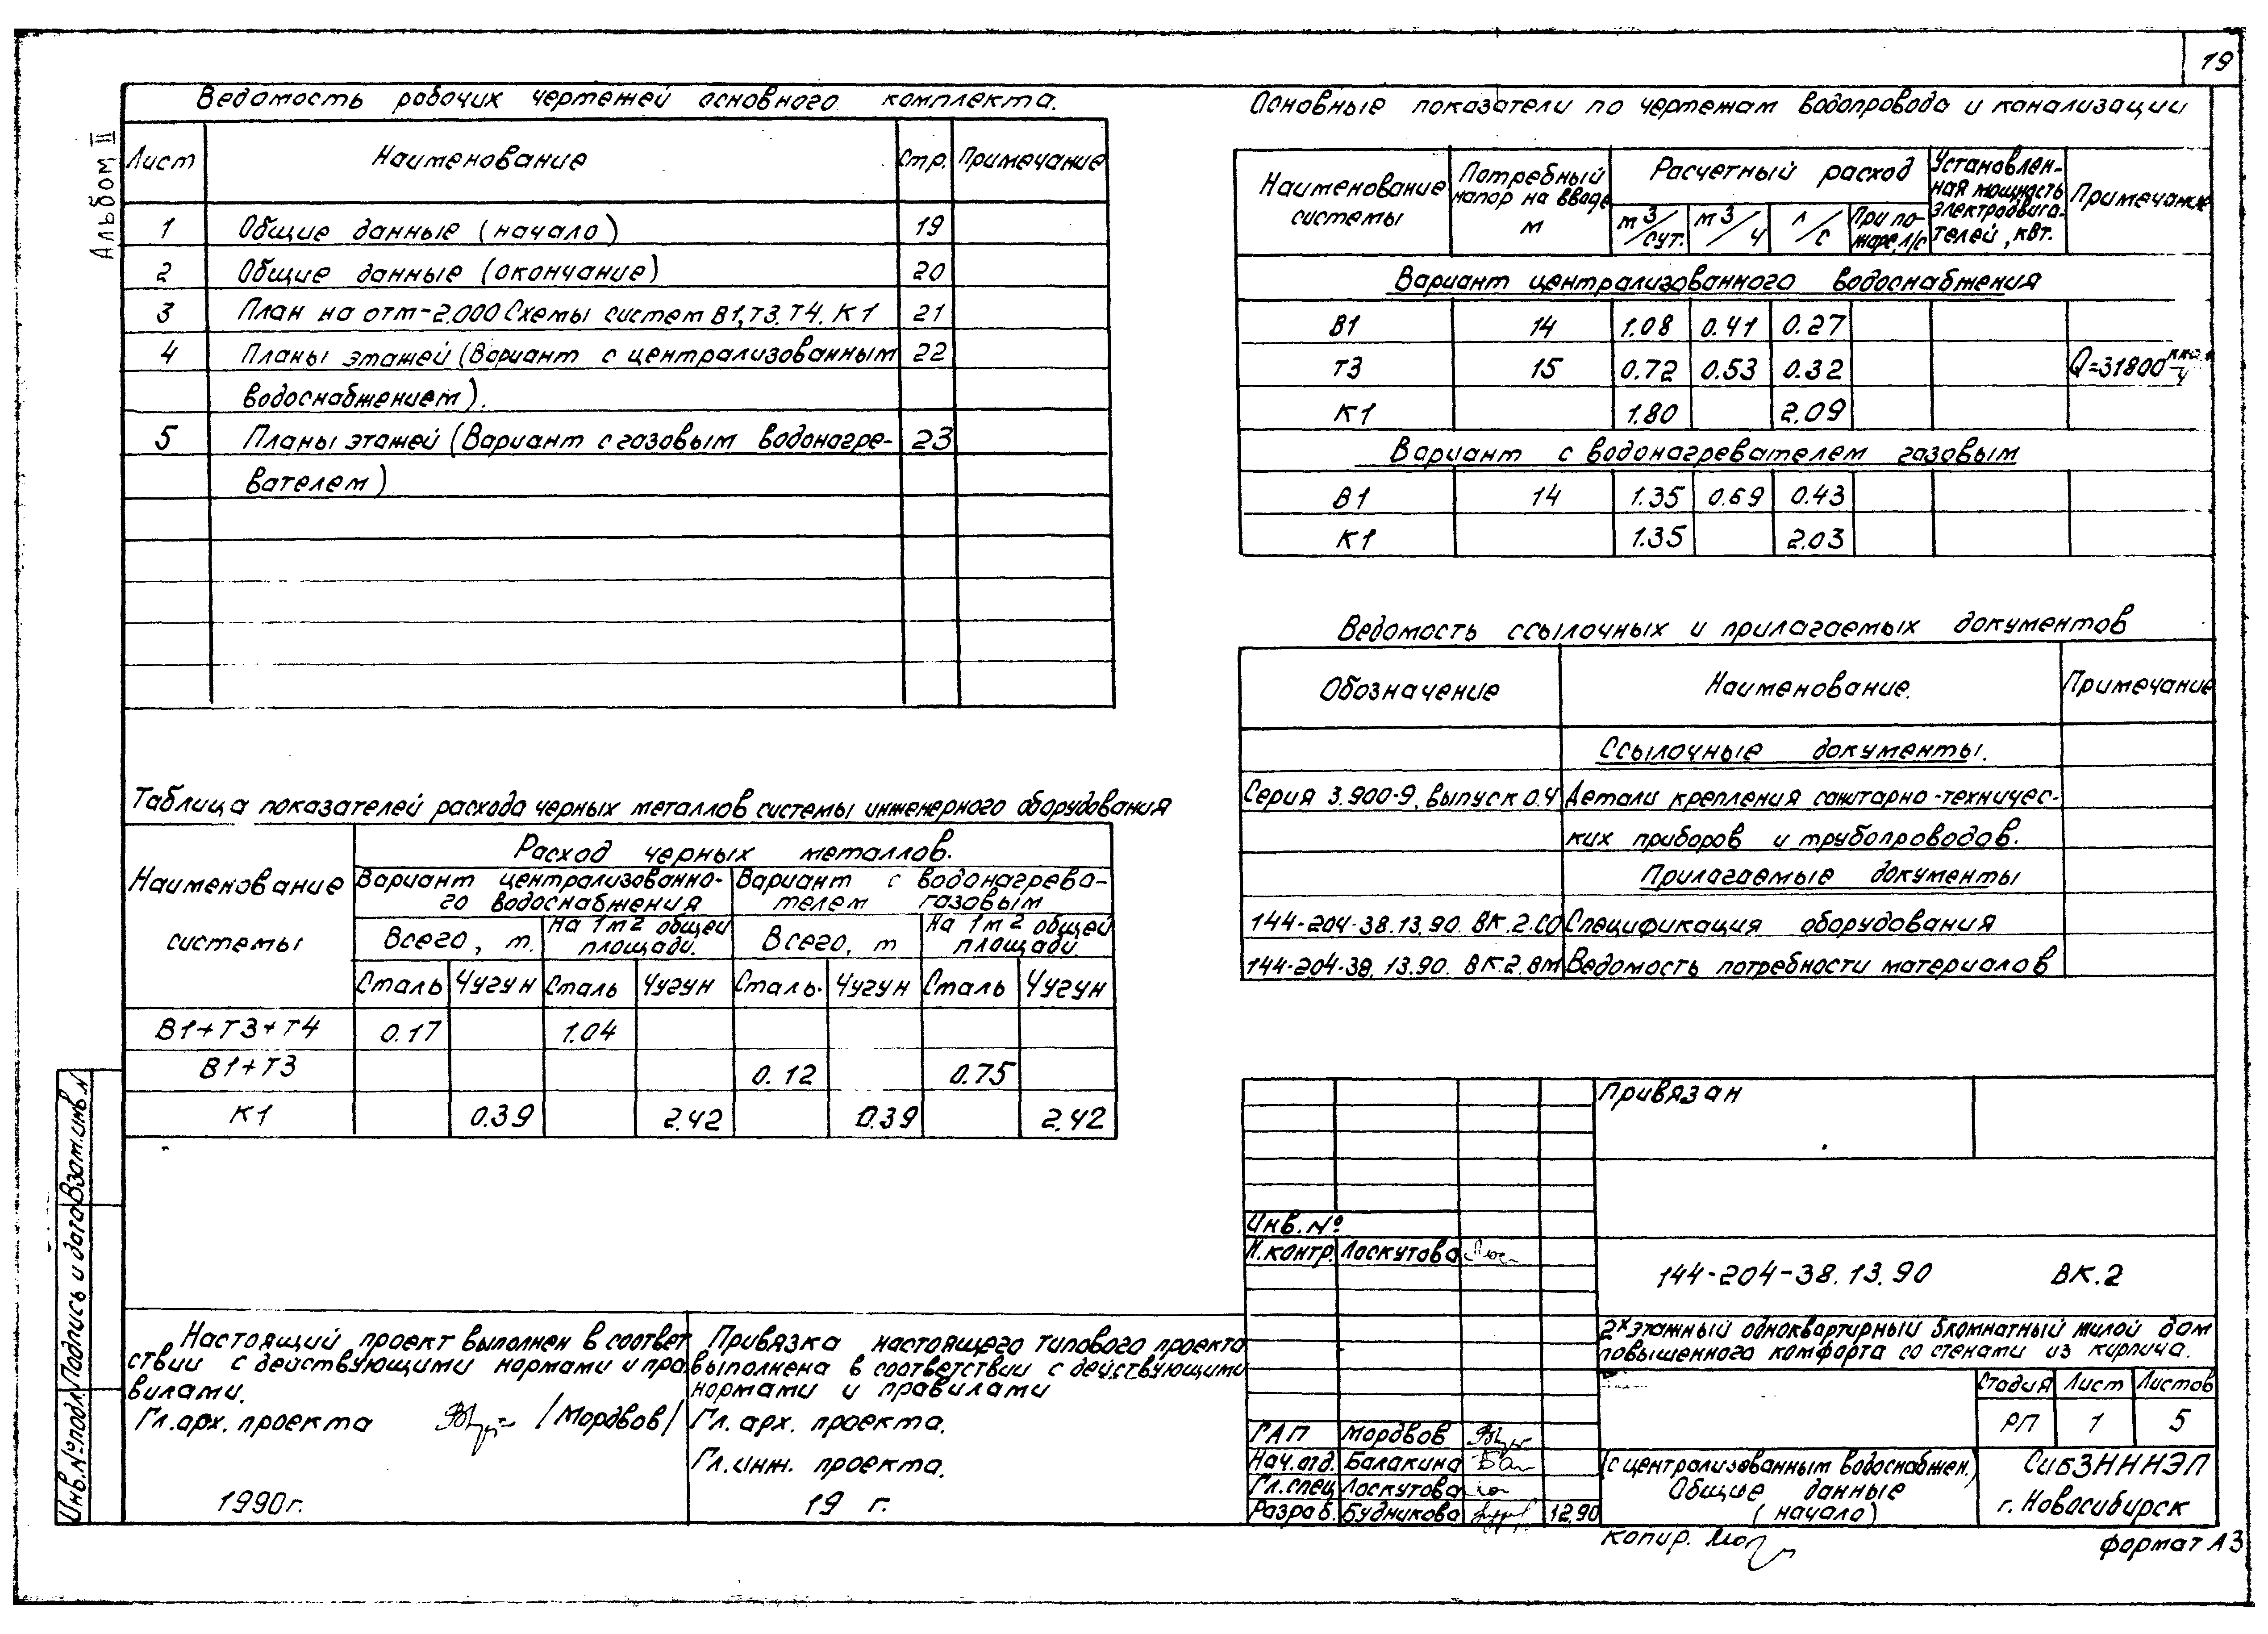 19
Альбом II
Ведомость рабочих чертежей основного комплекта.
Лист Наименование Стр. Примечание
1 Общие данные (начало) 19
2 Общие данные (окончание) 20
3 План на отм-2.000 Схемы систем В1, Т3, Т4, К1 21
4 Планы этажей (Вариант с централизованным 22
водоснабжением).
5 Планы этажей (Вариант с газовым водонагре- 23
вателем)
Таблица показателей расхода черных металлов системы инженерного оборудования
Наименование системы
Расход черных металлов.
Вариант централизованно- Вариант с водонагрева-
го водоснабжения телем газовым
Всего, т. На 1м2 общей площади. Всего, т На 1м2 общей площади.
Сталь Чугун Сталь Чугун Сталь. Чугун Сталь Чугун
В1+Т3+Т4 0.17 1.04
В1+Т3 0.12 0.75
К1 0.39 2.42 0.39 2.42
Основные показатели по чертежам водопровода и канализации
Наименование системы
Потребный напор на вводе м
Расчетный расход
м3/сут. м3/ч л/с При пожаре, л/с
Установлен-
ная мощность
электродвига-
телей, квт.
Примечание
Вариант централизованного водоснабжения
В1 14 1.08 0.41 0.27
Т3 15 0.72 0.53 0.32 Q=31800 ккал/ч
К1 1.80 2.09
Вариант с водонагревателем газовым
В1 14 1.35 0.69 0.43
К1 1.35 2.03
Ведомость ссылочных и прилагаемых документов
Обозначение Наименование. Примечание
Ссылочные документы.
Серия 3.900-9, выпуск 0.4 Детали крепления санитарно-техничес-
ких приборов и трубопроводов.
Прилагаемые документы
144-204-38.13.90. ВК.2.СО Спецификация оборудования
144-204-38.13.90. ВК.2.ВМ Ведомость потребности материалов
Инв.№подл. Подпись и дата Взам.инв.№
Настоящий проект выполнен в соответ
ствии с действующими нормами и пра
вилами.
Гл.арх. проекта /Мордвов/
1990г.
Привязка настоящего типового проекта
выполнена в соответствии с действующими
нормами и правилами
Гл. арх. проекта.
Гл.инж. проекта.
19 г.
Привязан
Инв.№
Н.контр. Лоскутова
144-204-38.13.90 ВК.2
2хэтажный одноквартирный 5комнатный жилой дом
повышенного комфорта со стенами из кирпича.
Стадия Лист Листов
РП 1 5
ГАП Мордвов
Нач.отд. Балакина
Гл.спец Лоскутова
Разраб. Будникова 12.90
(с централизованным водоснабжен.)
Общие данные
(начало)
СибЗНИИЭП
г. Новосибирск
копир.
формат А3